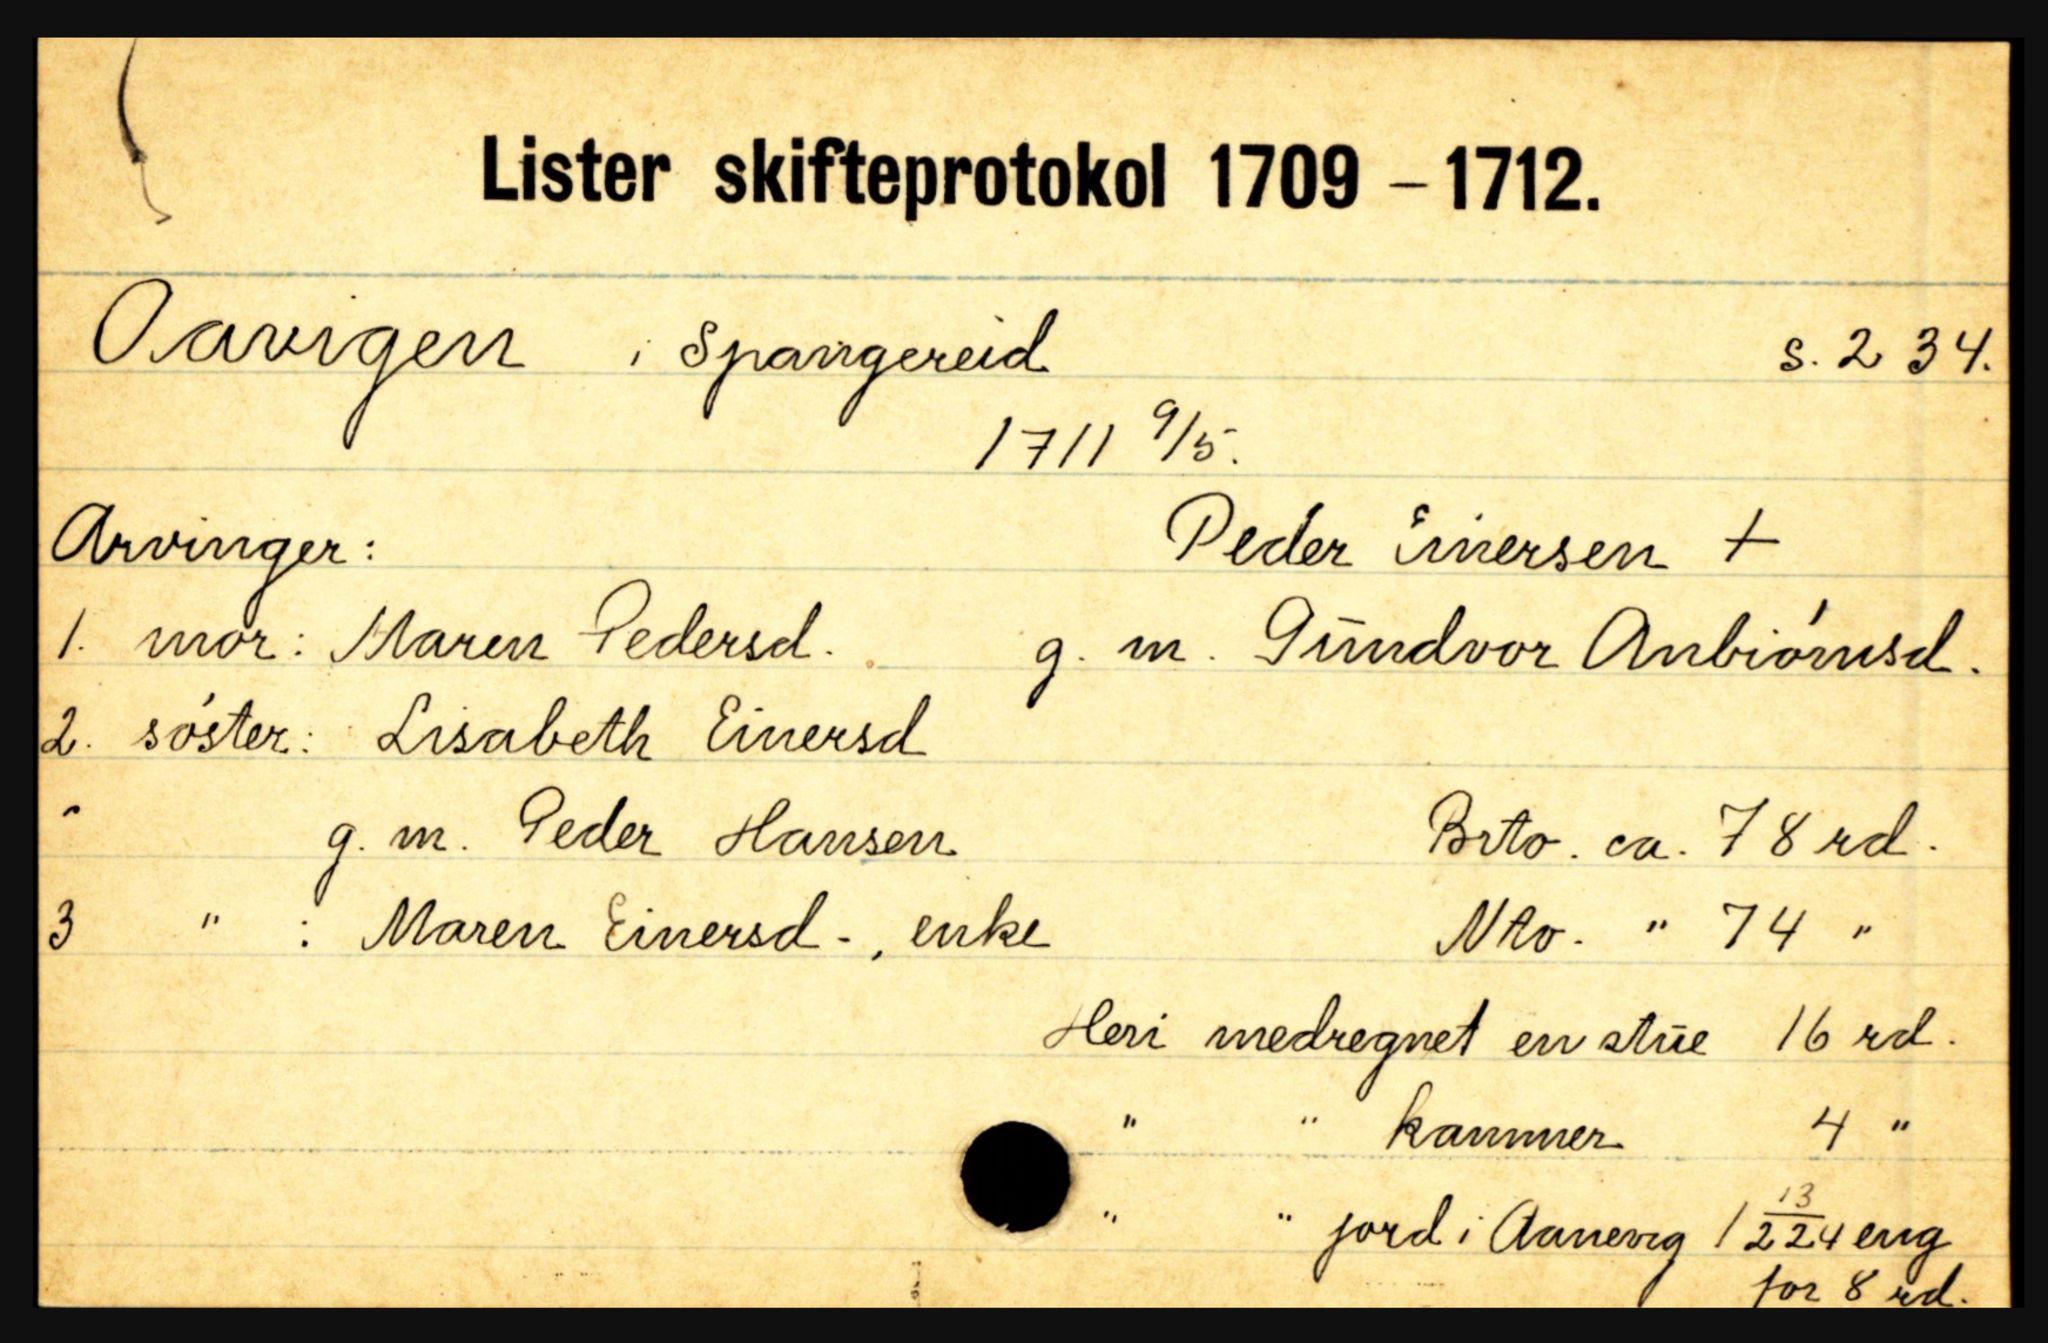 Lister skifteprotokol 1709 – 1712.
Oavigen i Spangereid s. 234.
1711 9/5.
Arvinger: Peder Einersen +
1. mor: Maren Pedersd. g. m. Gundvor Anbiørnsd.
2. søster: Lisabeth Einersd
" g. m. Peder Hansen Brto. ca. 78 rd.
3 " : Maren Einersd., enke Nto. " 74 "
Heri medregnet en stue 16 rd.
" " kammer 4 "
" " jord i Aanevig 1 13/224 eng
for 8 rd.